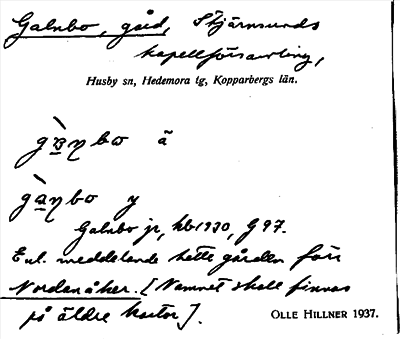 Galnbo, gård, Stjärnsunds
kapellförsamling,
Husby sn, Hedemora tg, Kopparbergs län.
bo ä
bo y
Galnbo jr, hb 1930, G 97.
Enl. meddelande hette gården förr
Nordanåker. [Namnet skall finnas
på äldre kartor].
OLLE HILLNER 1937.